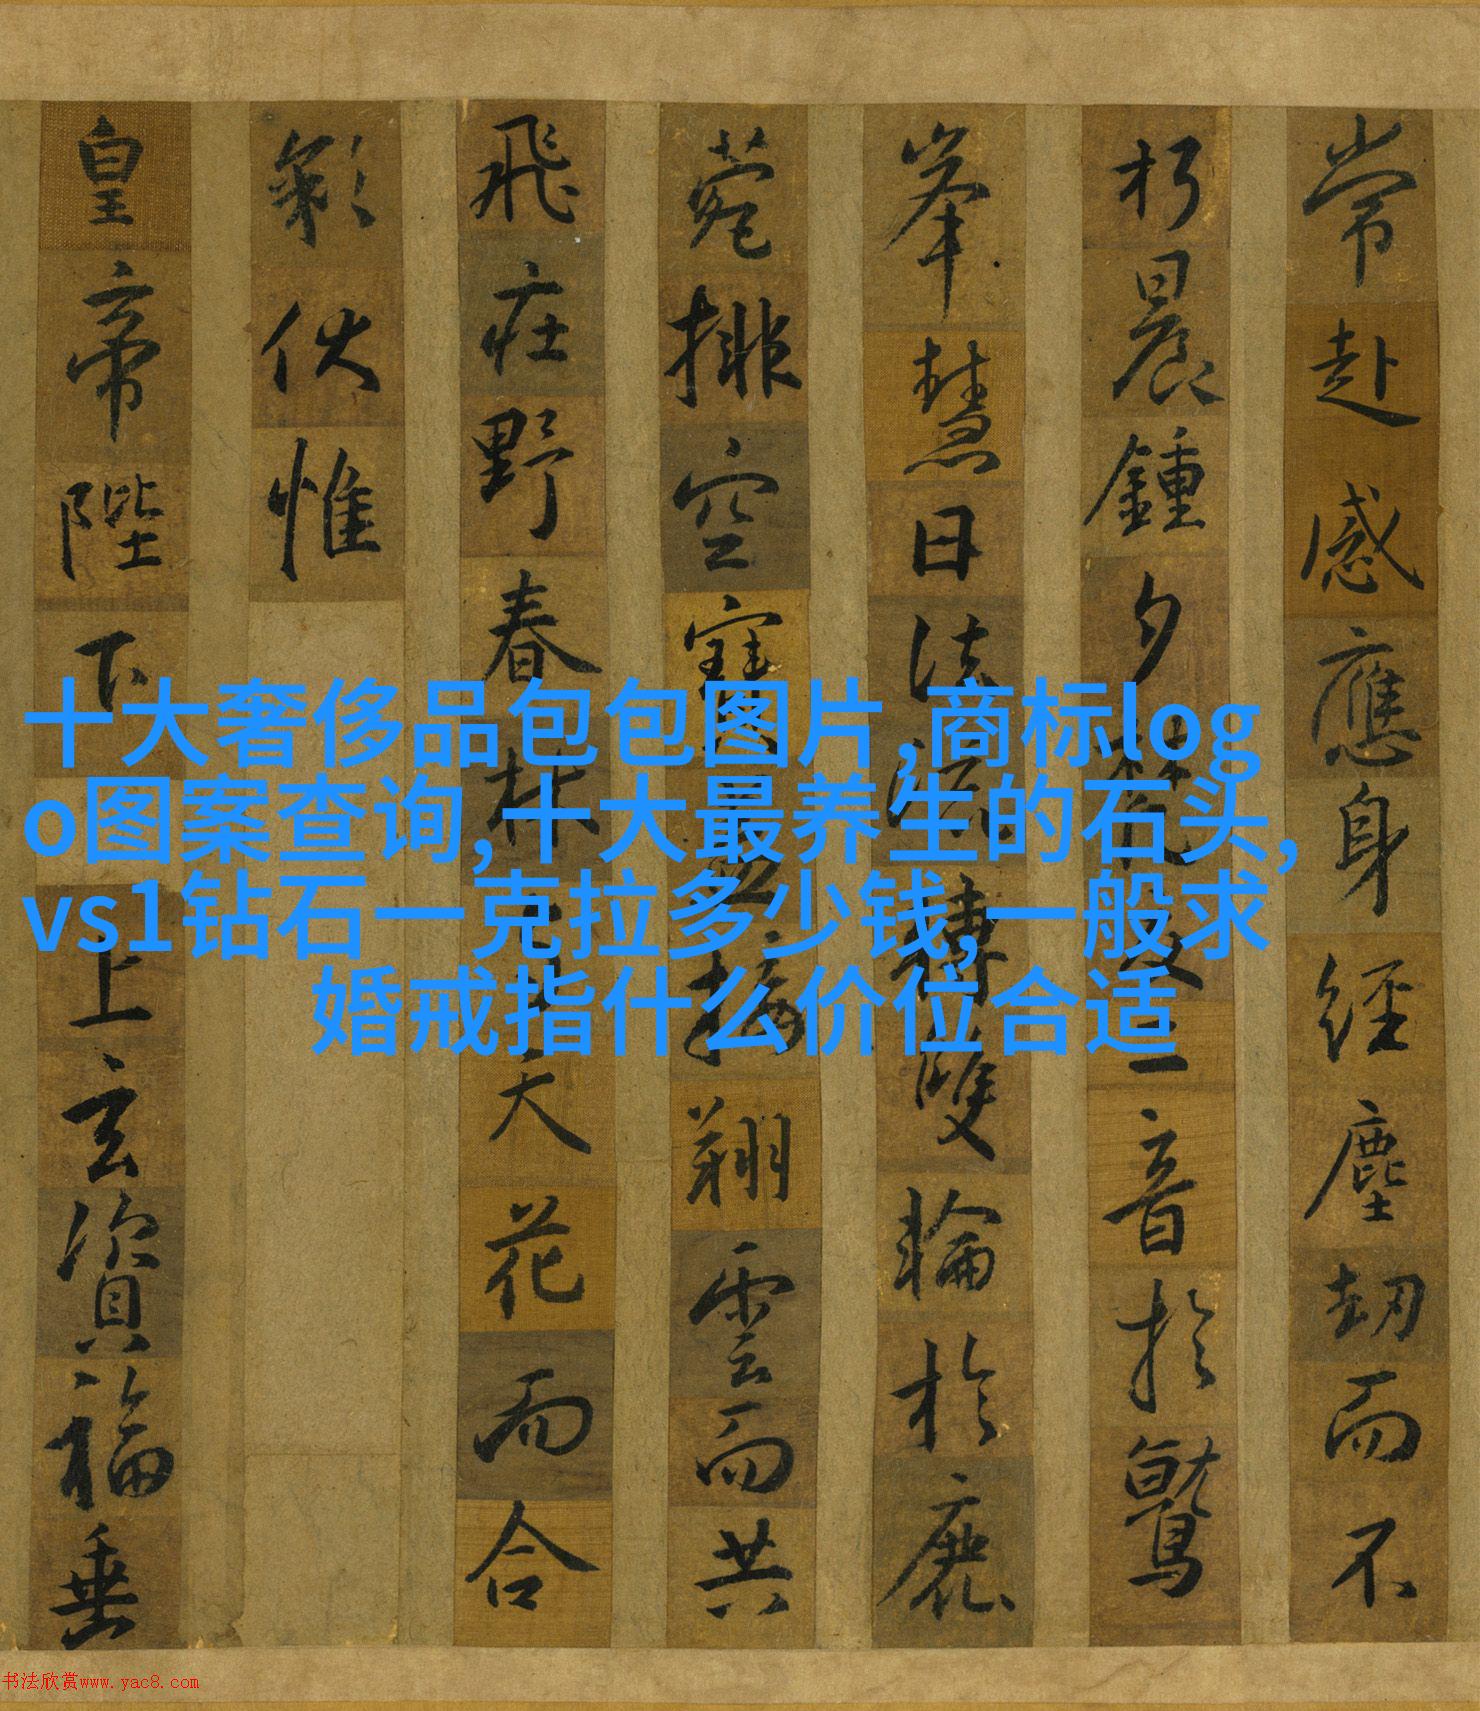 常赴感應身經塵劫而不
朽晨鍾夕梵交二音於鷲
峯慧日法流轉雙輪於鹿
菀排空寶蓋接翔雲而共
飛莊野春林与天花而合
彩伏惟
皇帝陛下上玄資福垂
十大奢侈品包包图片,商标log
o图案查询,十大最养生的石头,
vs1钻石一克拉多少钱,一般求
婚戒指什么价位合适
书法欣赏www.yac8.com